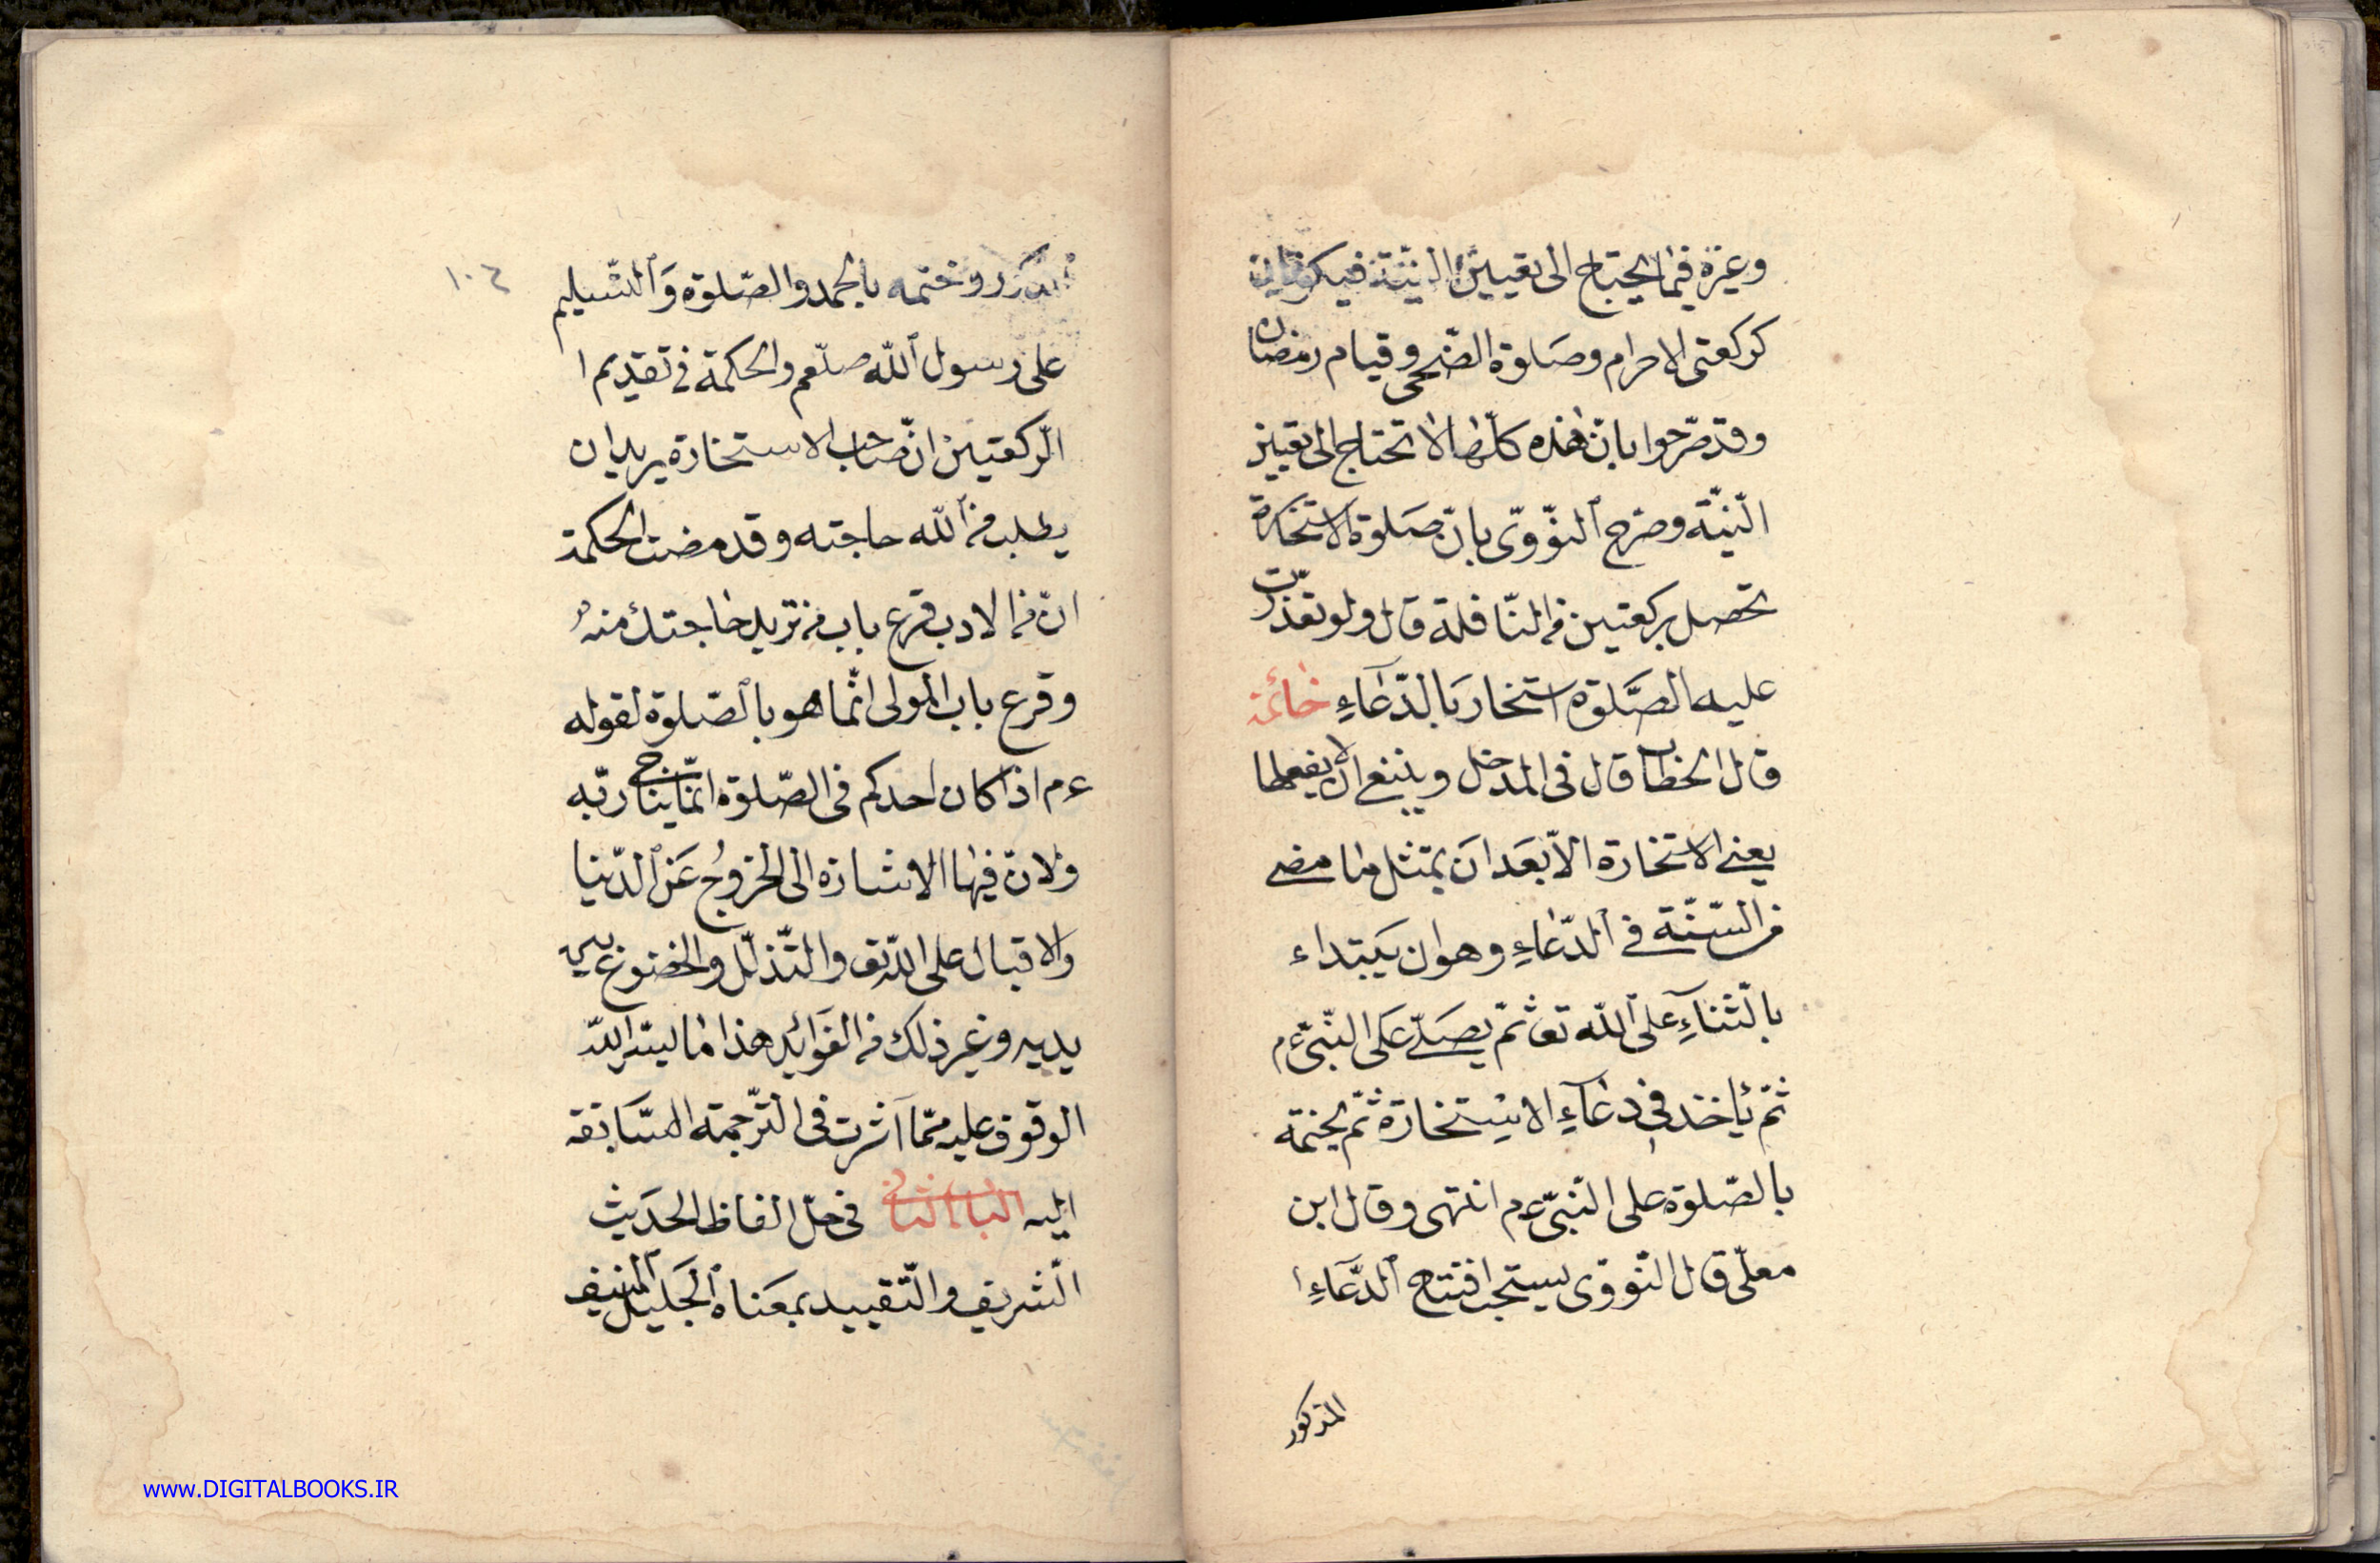 وغيره فيما يحتاج الى تعيين النيّة فيكونان
كركعتى الاحرام وصَلوة الضّحى وقيام رمضان
وقد صّرحوا بانّ هٰذه كلّها لا تحتاج الى تعيين
النّيّة وصّرح النوّوىّ بانّ صَلوة الاستخارة
تحصل بركعتين من النّافلة قال ولو تعذّرت
عليه الصَّلوة استخار بالدّعَاءِ خاتمة
قال الخطاب قال فى المدخل وينبغى ان لا يفعلها
يعنى الاستخارة الاّ بَعَد انَ يمتثل ما مضى
من السّنّة فى الدّعَاءِ وهو ان يَبتداء
بالّثناءِ على اللّه تعَ ثمّ يصَلّى عَلى النّبىّ ءم
ثمّ يأخذ فى دعَآءِ الاستخارة ثمّ يختمة
بالصّلوة على النّبىّ ءم انتهى وقال ابن
معلّى قال النّووّى يستحب افتتاح الدّعَاءِ ا
المذكور
١٠٤
المذكور وختمه بالحمد والصّلوة وَالتّسليم
على رسول اللّه صلّعم والحكمة فى تقديم ا
الّركعتين انّ صَاحب الاستخارة يريد ان
يطلب من اللّه حاجته وقد مضت الحكمة
انّ من الادب قرع باب من تريد حَاجتك منهُ
وقرع باب المولى انّما هو بالصّلوة لقوله
ءم اذا كان احدكم فى الصّلوة انّما يناجى ربّه
ولانّ فيها الاشارة الى الخروُج عَن الدّنيا
والاقبال على اللّه تعَ والتّذلّل والخضوع بين
يديه وغير ذلك من الفَوائد هذا ما يسّر اللّه
الوقوف عليه ممّا آشرت فى التّرجمة السّابقة
اليه الباب الثانى فى حلّ الفاظ الحَديث
الّشريف والّتقييد بمعَناه الجَليل المنيف
www.DIGITALBOOKS.IR